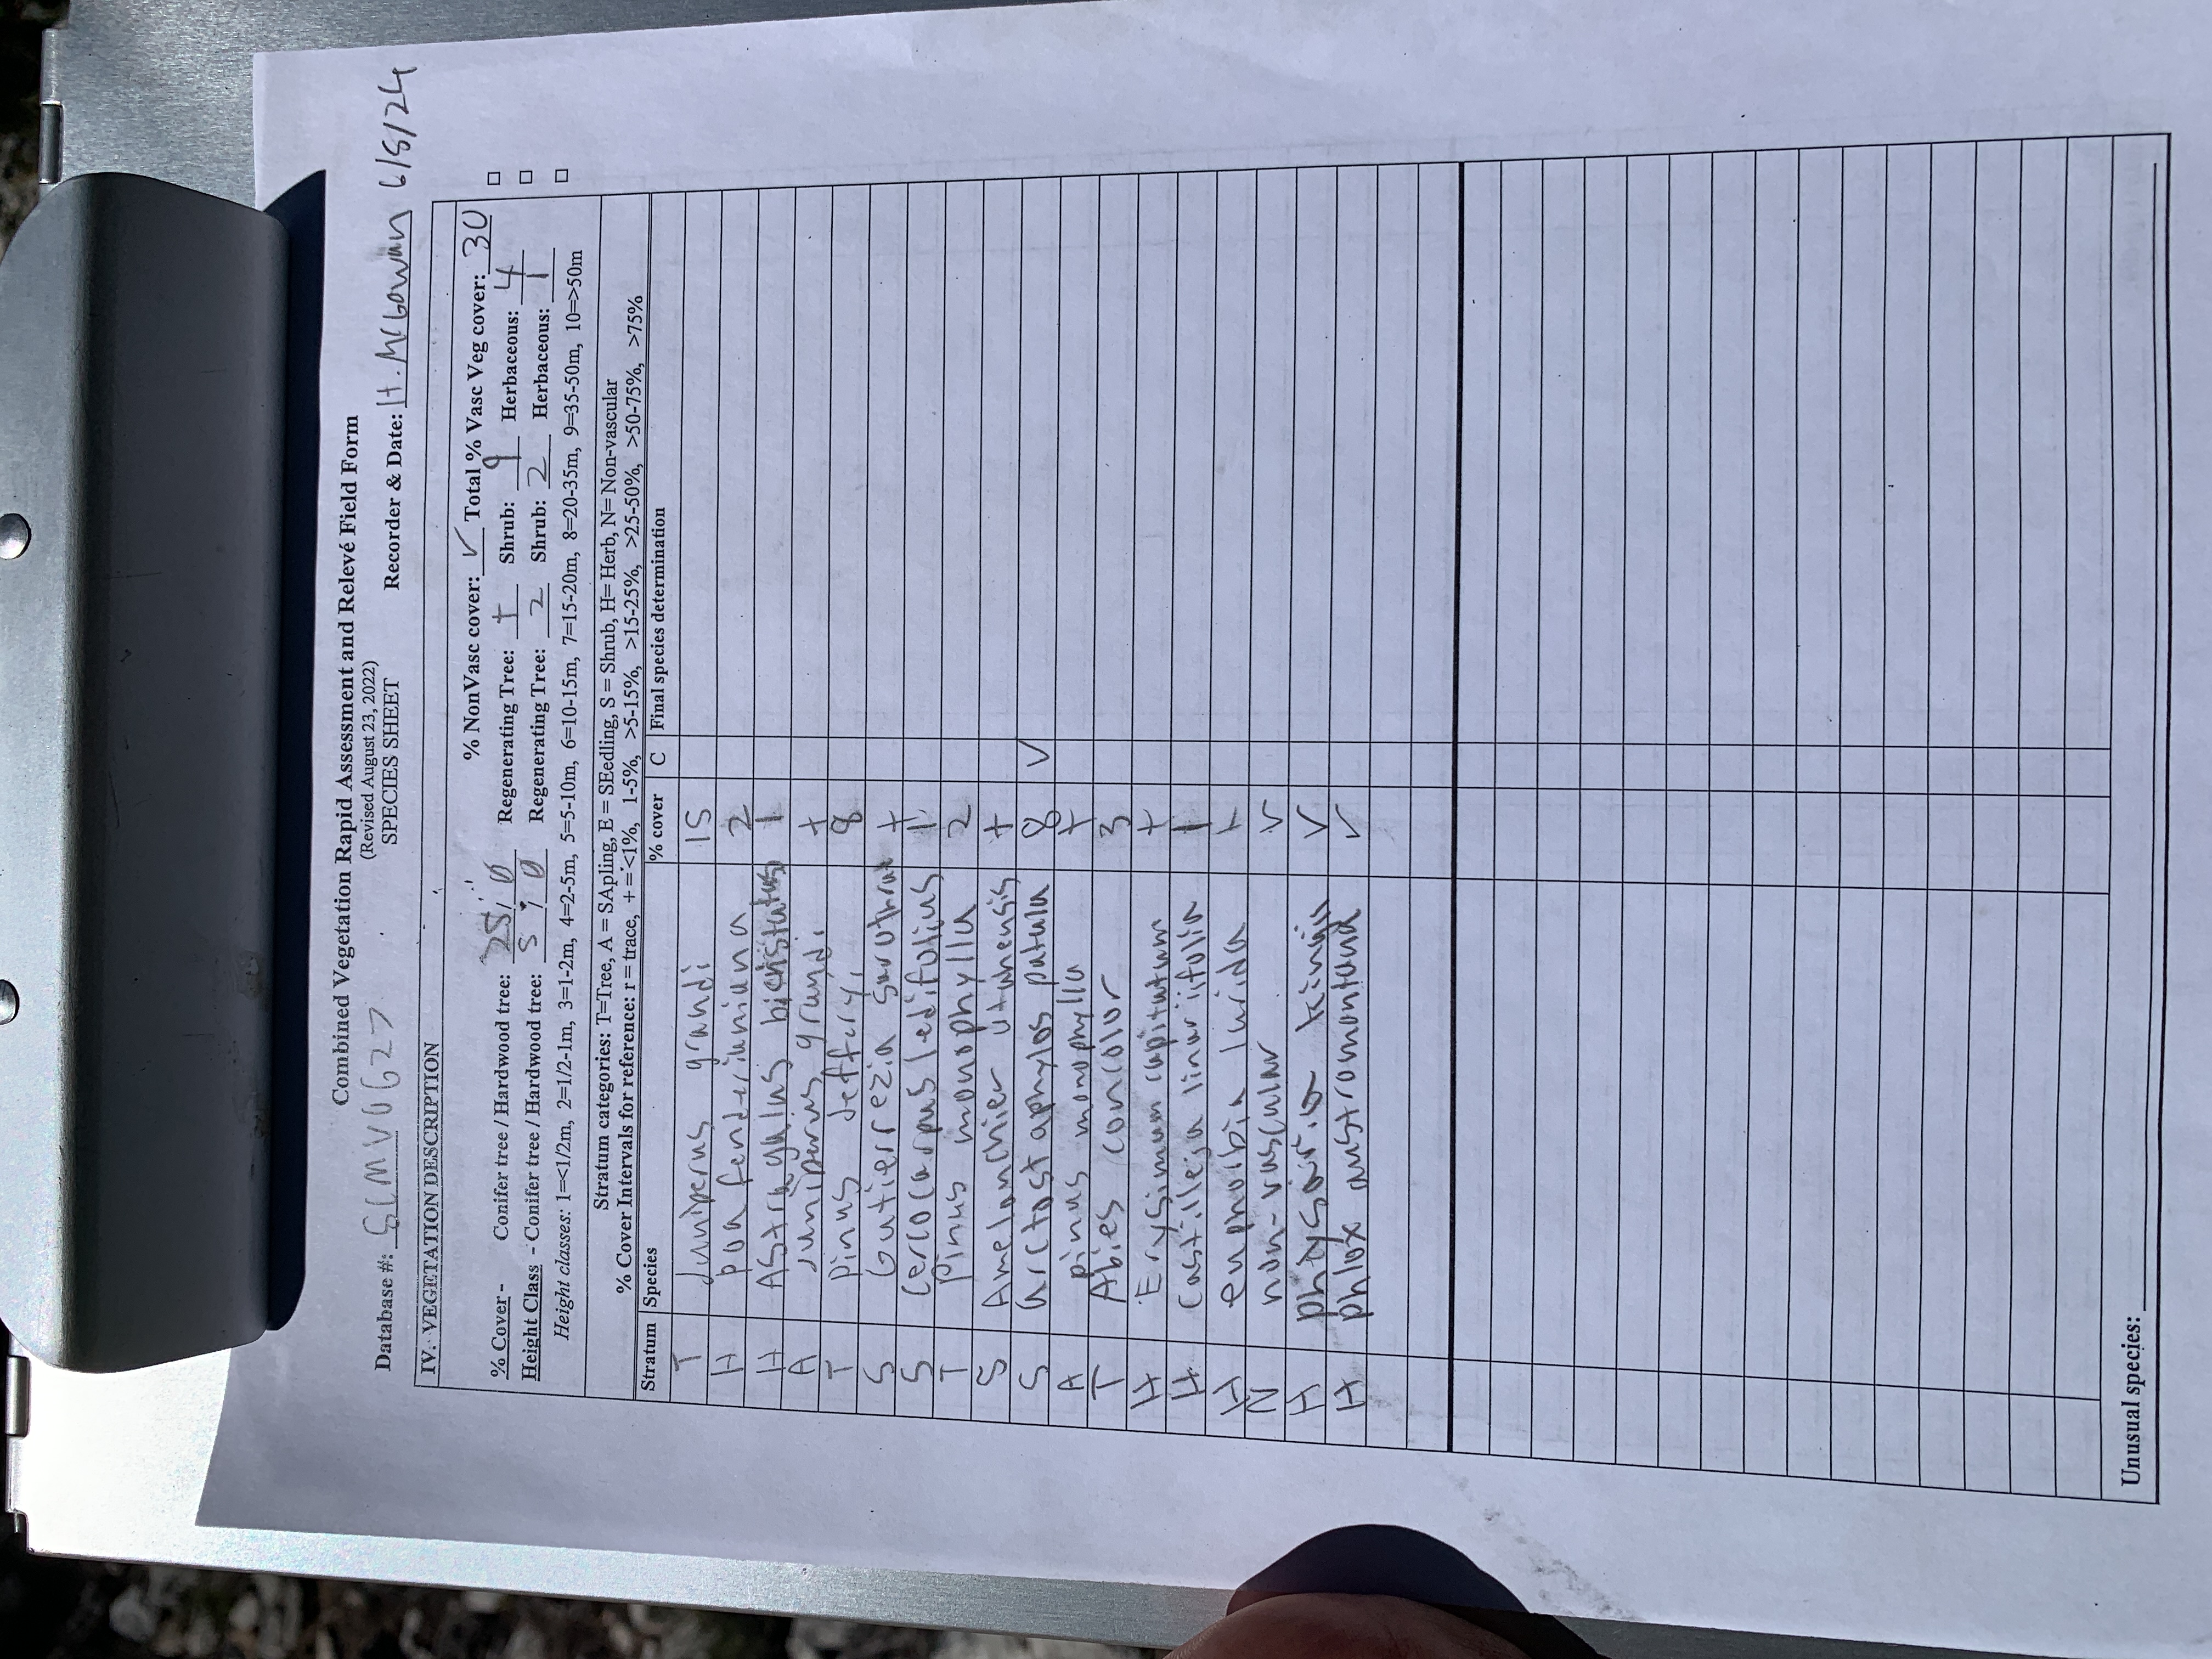 Combined Vegetation Rapid Assessment and Relevé Field Form
(Revised August 23, 2022)
SPECIES SHEET
Database #: SCMV0627 Recorder & Date: H. McGowan 6/8/24
IV. VEGETATION DESCRIPTION
% NonVasc cover: r Total % Vasc Veg cover: 30
% Cover - Conifer tree / Hardwood tree: 25 / 0 Regenerating Tree: + Shrub: 9 Herbaceous: 4 □
Height Class - Conifer tree / Hardwood tree: 5 / 0 Regenerating Tree: 2 Shrub: 2 Herbaceous: 1 □
Height classes: 1=<1/2m, 2=1/2-1m, 3=1-2m, 4=2-5m, 5=5-10m, 6=10-15m, 7=15-20m, 8=20-35m, 9=35-50m, 10=>50m □
Stratum categories: T=Tree, A = SApling, E = SEedling, S = Shrub, H= Herb, N= Non-vascular
% Cover Intervals for reference: r = trace, + = <1%, 1-5%, >5-15%, >15-25%, >25-50%, >50-75%, >75%
Stratum Species % cover C Final species determination
T Juniperus grandi 15
H poa fenderiniana 2
H Astragalus bicristatus 1
A Juniperus grandi +
T Pinus Jeffery, 8
S Gutierrezia +
S Cercocarpus ledifolius 1
T Pinus monophylla 2
S Amelanchier utahensis +
S Arctostaphylos patula 8 ✓
A pinus monophylla +
T Abies concolor 3
H Erysimum capitatum +
H Castilleja linariifolia 1
H euphorbia lurida +
N non-vascular r
H physaria kingii r
H phlox austromontana r
Unusual species: